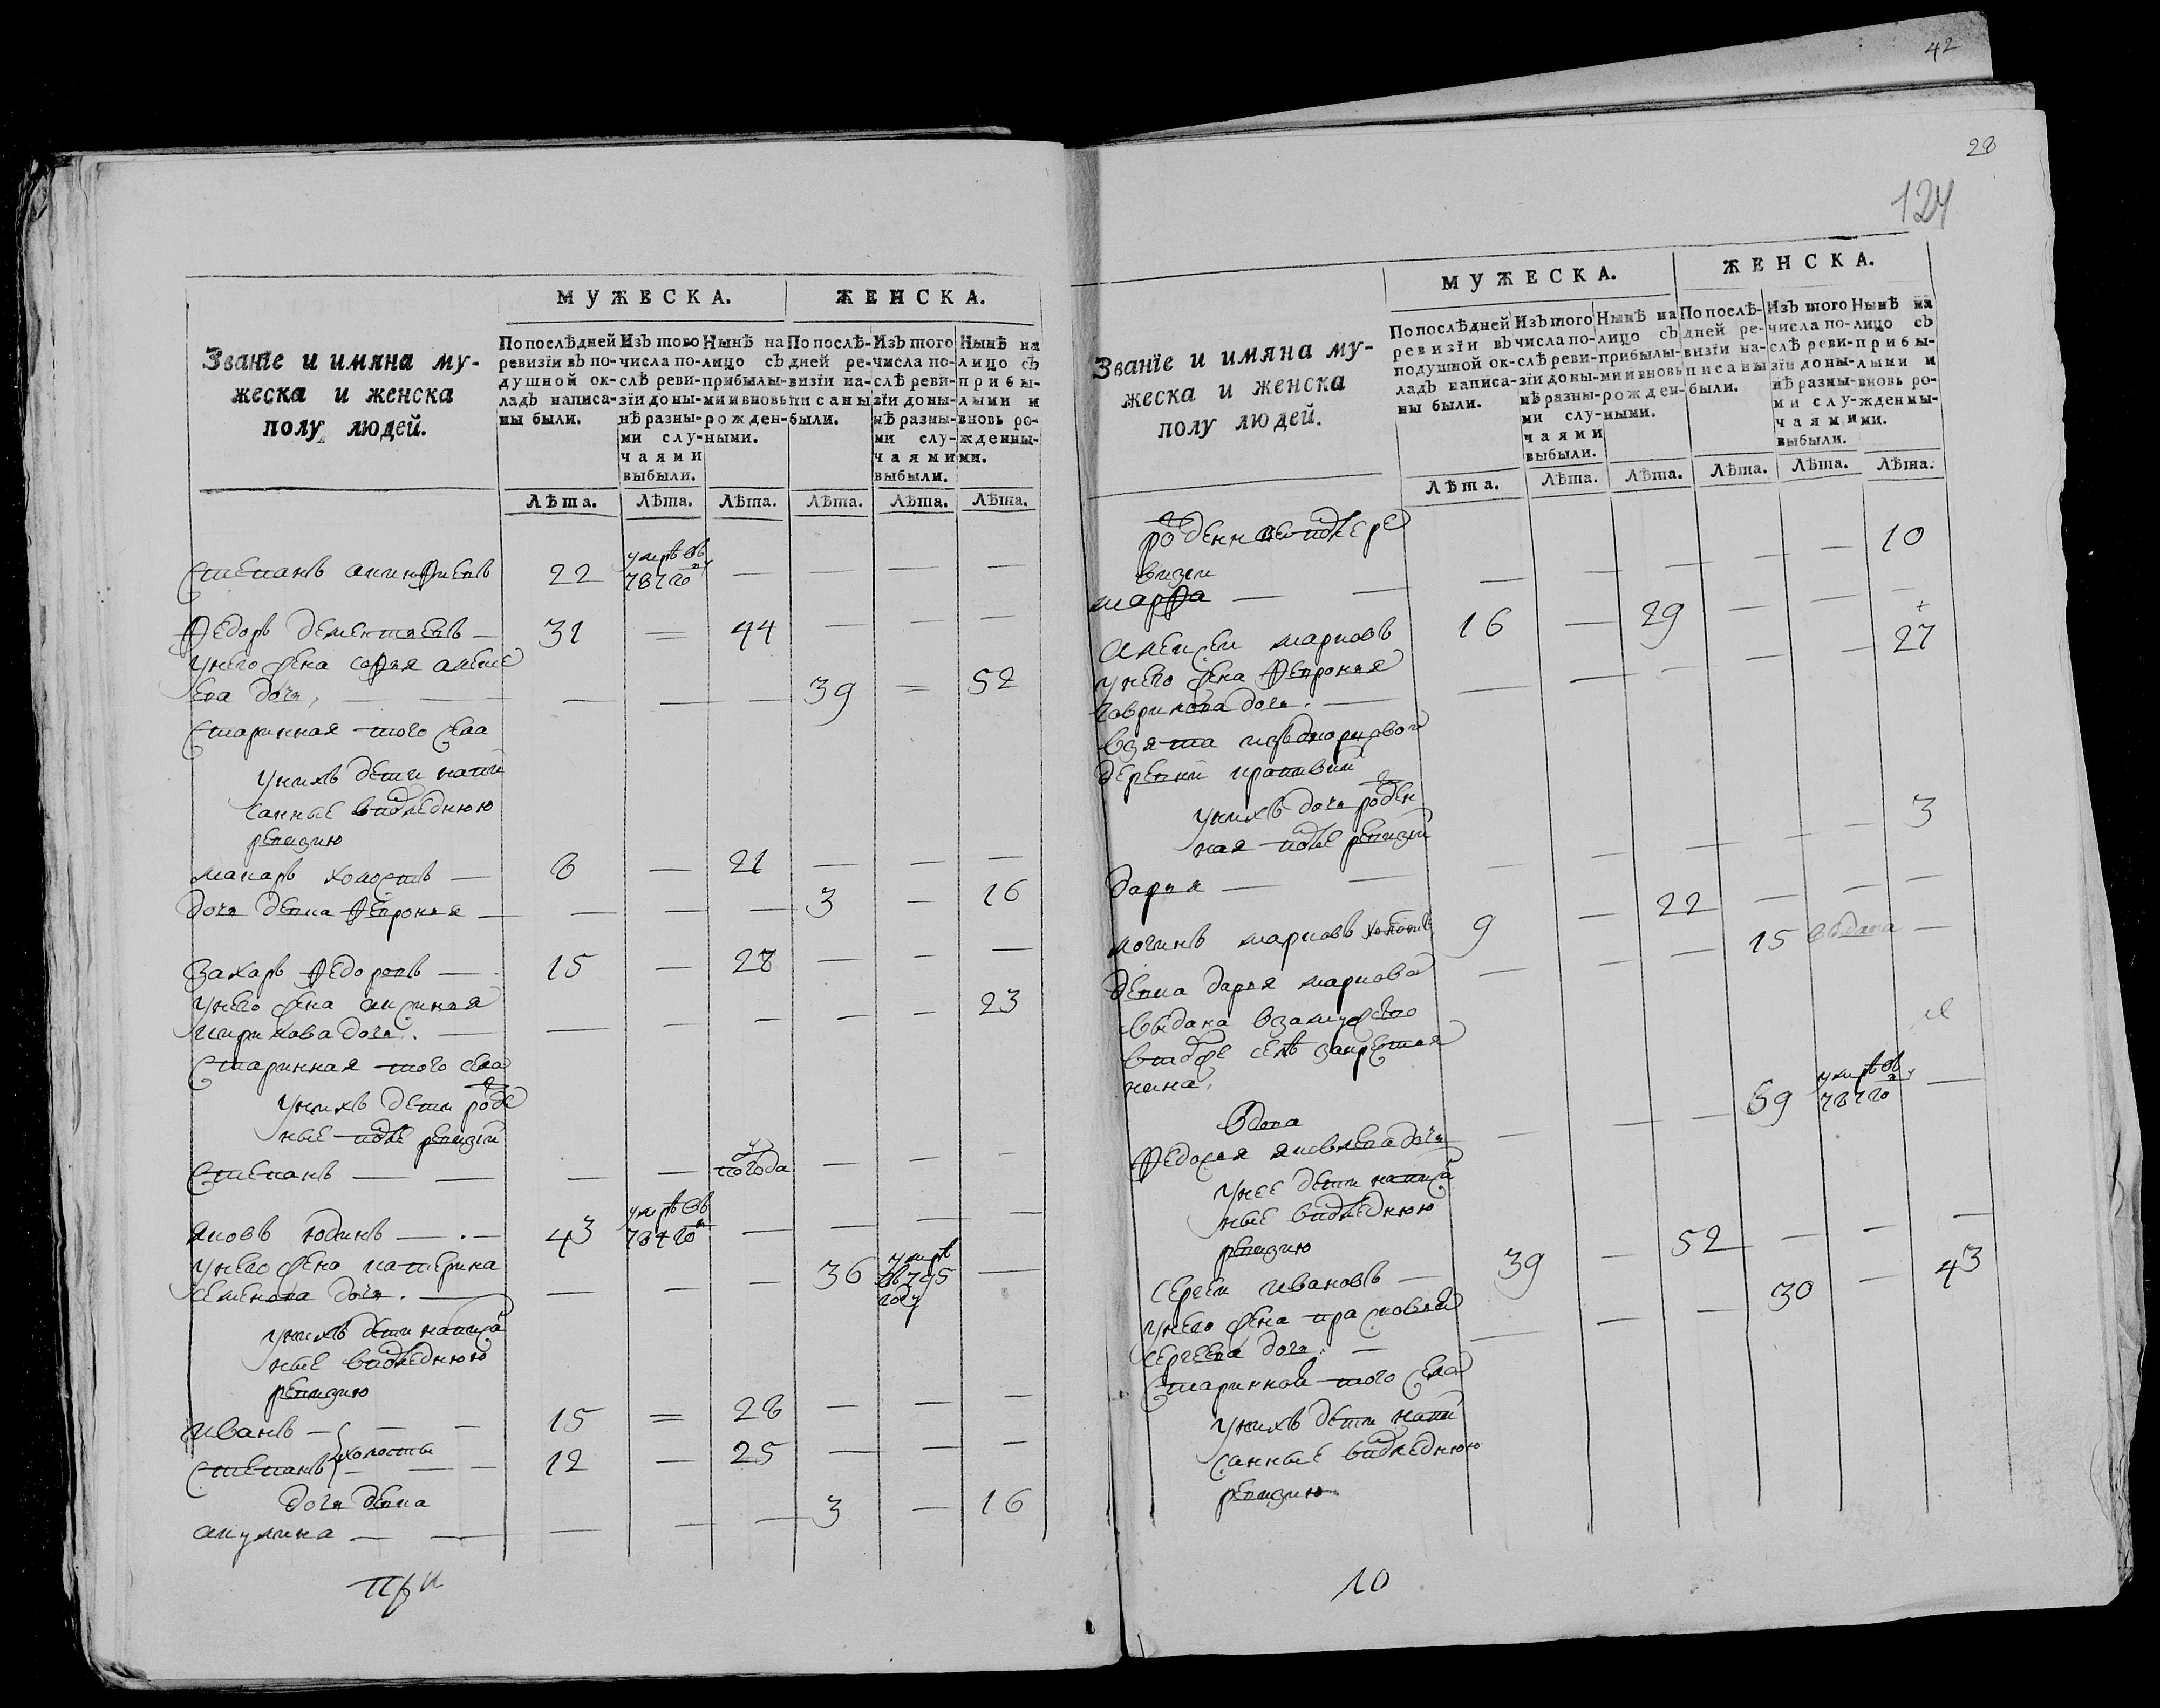 Званїе и имяна му-
жеска и женска
полу людей.
МУЖЕСКА.
ЖЕНСКА.
По послѣдней
ревизїи въ по-
душной ок-
ладъ написа-
ны были.
Изъ того
числа по-
слѣ реви-
зїи доны-
нѣ разны-
ми слу-
чаями
выбыли.
Нынѣ на
лицо съ
прибылы-
ми и вновь
рожден-
ными.
По послѣ-
дней ре-
визїи на-
писаны
были.
Изъ того
числа по-
слѣ реви-
зїи доны-
нѣ разны-
ми слу-
чаями
выбыли.
Нынѣ на
лицо съ
прибы-
лыми и
вновь ро-
жденны-
ми.
Лѣта. Лѣта. Лѣта. Лѣта. Лѣта. Лѣта.
Степанъ 22 умрѣ въ 787 го — — — —
Федоръ дементьевъ — 31 = 44 — — —
унего жена софья алексе
ева дочь, — — — — 39 = 52
Старинная того села
унихъ дети напи
санные впослѣднюю
ревизию
макаръ холостъ — 8 — 21 — — —
дочь девка феврония — — — — 3 — 16
Захаръ Федоровъ — 15 — 28 — — —
унего жена аксинья
кирилова дочь. — — — — — — 23
Старинная того села
унихъ дети роже
ные после ревизїи
Степанъ — — — — полгода — — —
яковъ юдинъ — . — 43 умрѣ въ 784 го — — — —
унего жена катерина
семенова дочь. — — — — 36 умрѣ въ 795 году —
унихъ дети написа
ные впослѣднюю
ревизию
иванъ — — — 15 = 28 — — —
Степанъ холосты — — 12 — 25 — — —
дочь девка
акулина — — — — — 3 — 16
42
28
124
Званїе и имяна му-
жеска и женска
полу людей.
МУЖЕСКА.
ЖЕНСКА.
По послѣдней
ревизїи въ
подушной ок-
ладъ написа-
ны были.
Изъ того
числа по-
слѣ реви-
зїи доны-
нѣ разны-
ми слу-
чаями
выбыли.
Нынѣ на
лицо съ
прибылы-
ми и вновь
рожден-
ными.
По послѣ-
дней ре-
визїи на-
писаны
были.
Изъ того
числа по-
слѣ реви-
зїи доны-
нѣ разны-
ми слу-
чаями
выбыли.
Нынѣ на
лицо съ
прибы-
лыми и
вновь ро-
жденны-
ми.
Лѣта. Лѣта. Лѣта. Лѣта. Лѣта. Лѣта.
после ре
визїи
марфа — — — — — — — 10
алексей марковъ 16 — 29 — — —
унего жена феврония
гаврилова дочь. — — — — — — 27
взята
деревни
унихъ дочь рожен
ная после ревизїи
дарья — — — — — — — 3
логинъ марковъ холостъ 9 — 22 — — —
девка дарья маркова — — — 15 выдана —
выдана взамужство
втом же селѣ
нина.
вдова
Федосья яковлева дочь — — — 59 умрѣ въ 787 го —
унее дети написа
ные впослѣднюю
ревизию
сергей ивановъ — 39 — 52 — — —
унего жена прасковья
сергеева дочь. — — — — 30 — 43
Старинной того села
унихъ дети напи
санные впослѣднюю
ревизию
10